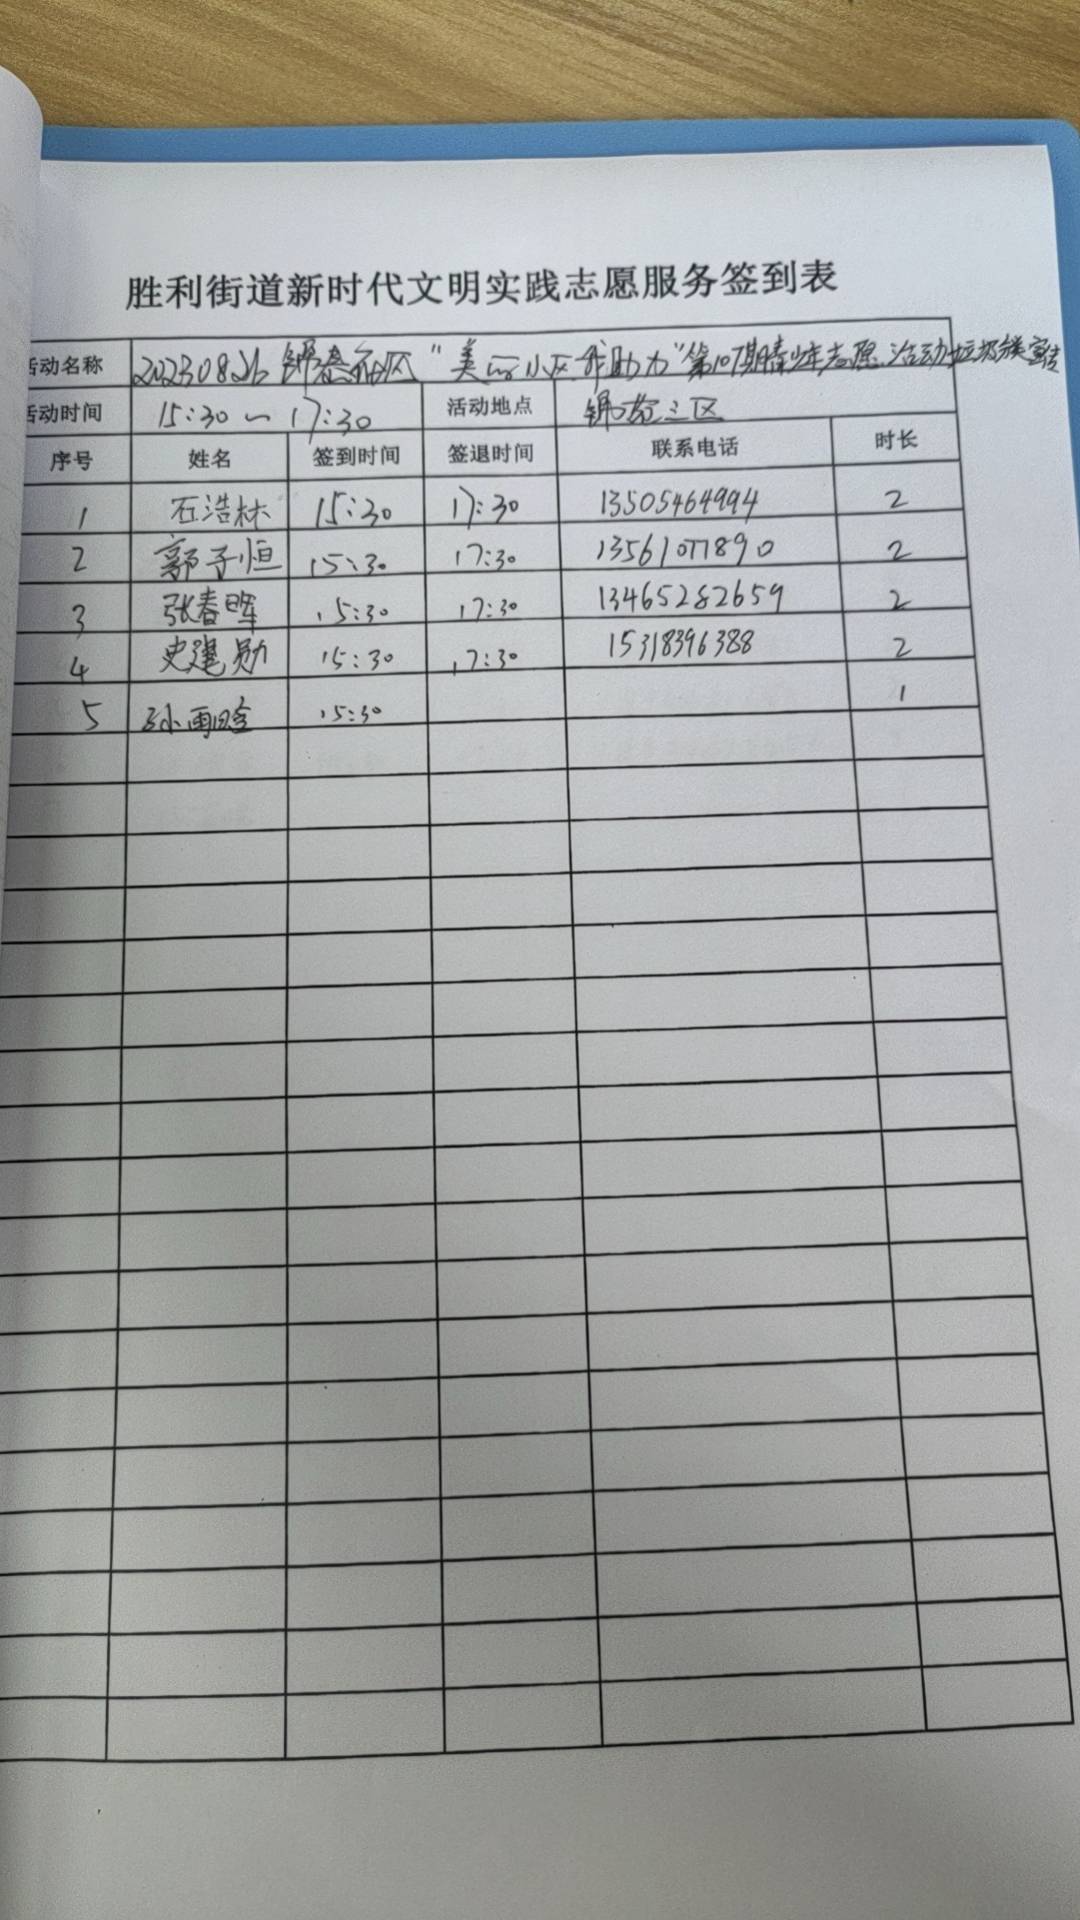 胜利街道新时代文明实践志愿服务签到表
活动名称 20230826 锦苑社区"美丽小区我助力"第107期青少年志愿活动垃圾分类宣传
活动时间 15:30～17:30 活动地点 锦苑三区
序号 姓名 签到时间 签退时间 联系电话 时长
1 石浩林 15:30 17:30 13505464994 2
2 郭子恒 15:30 17:30 13561077890 2
3 张春晖 15:30 17:30 13465282659 2
4 史建勋 15:30 17:30 15318396388 2
5 孙雨晗 15:30 1